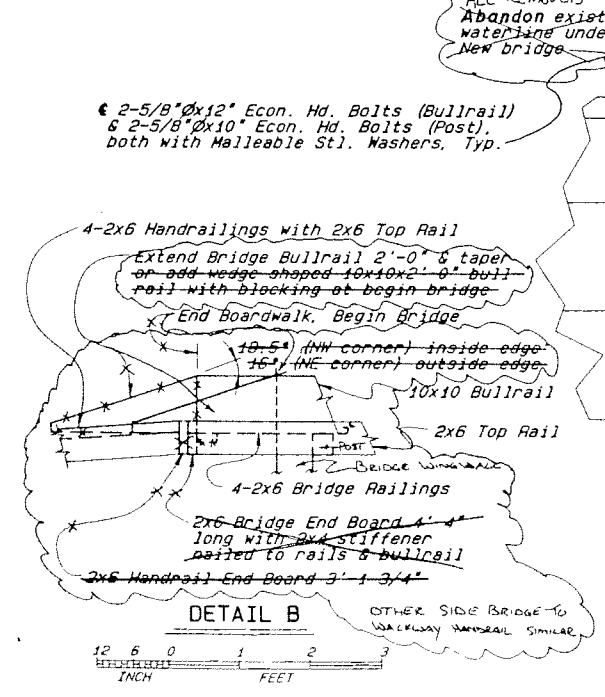 Abandon exist
waterline unde
New bridge
℄ 2-5/8"Øx12" Econ. Hd. Bolts (Bullrail)
& 2-5/8"Øx10" Econ. Hd. Bolts (Post),
both with Malleable Stl. Washers, Typ.
4-2x6 Handrailings with 2x6 Top Rail
Extend Bridge Bullrail 2'-0" & taper
or add wedge shaped 10x10x2'-0" bull
rail with blocking at begin bridge
End Boardwalk, Begin Bridge
10.5" (NW corner) inside edge
16" (NE corner) outside edge
10x10 Bullrail
2x6 Top Rail
POST
BRIDGE WINGWALL
4-2x6 Bridge Railings
2x6 Bridge End Board 4'-4"
long with 2x4 stiffener
nailed to rails & bullrail
2x6 Handrail End Board 3'-1 3/4"
DETAIL B
OTHER SIDE BRIDGE TO
WALKWAY HANDRAIL SIMILAR
12 6 0 1 2 3
INCH FEET